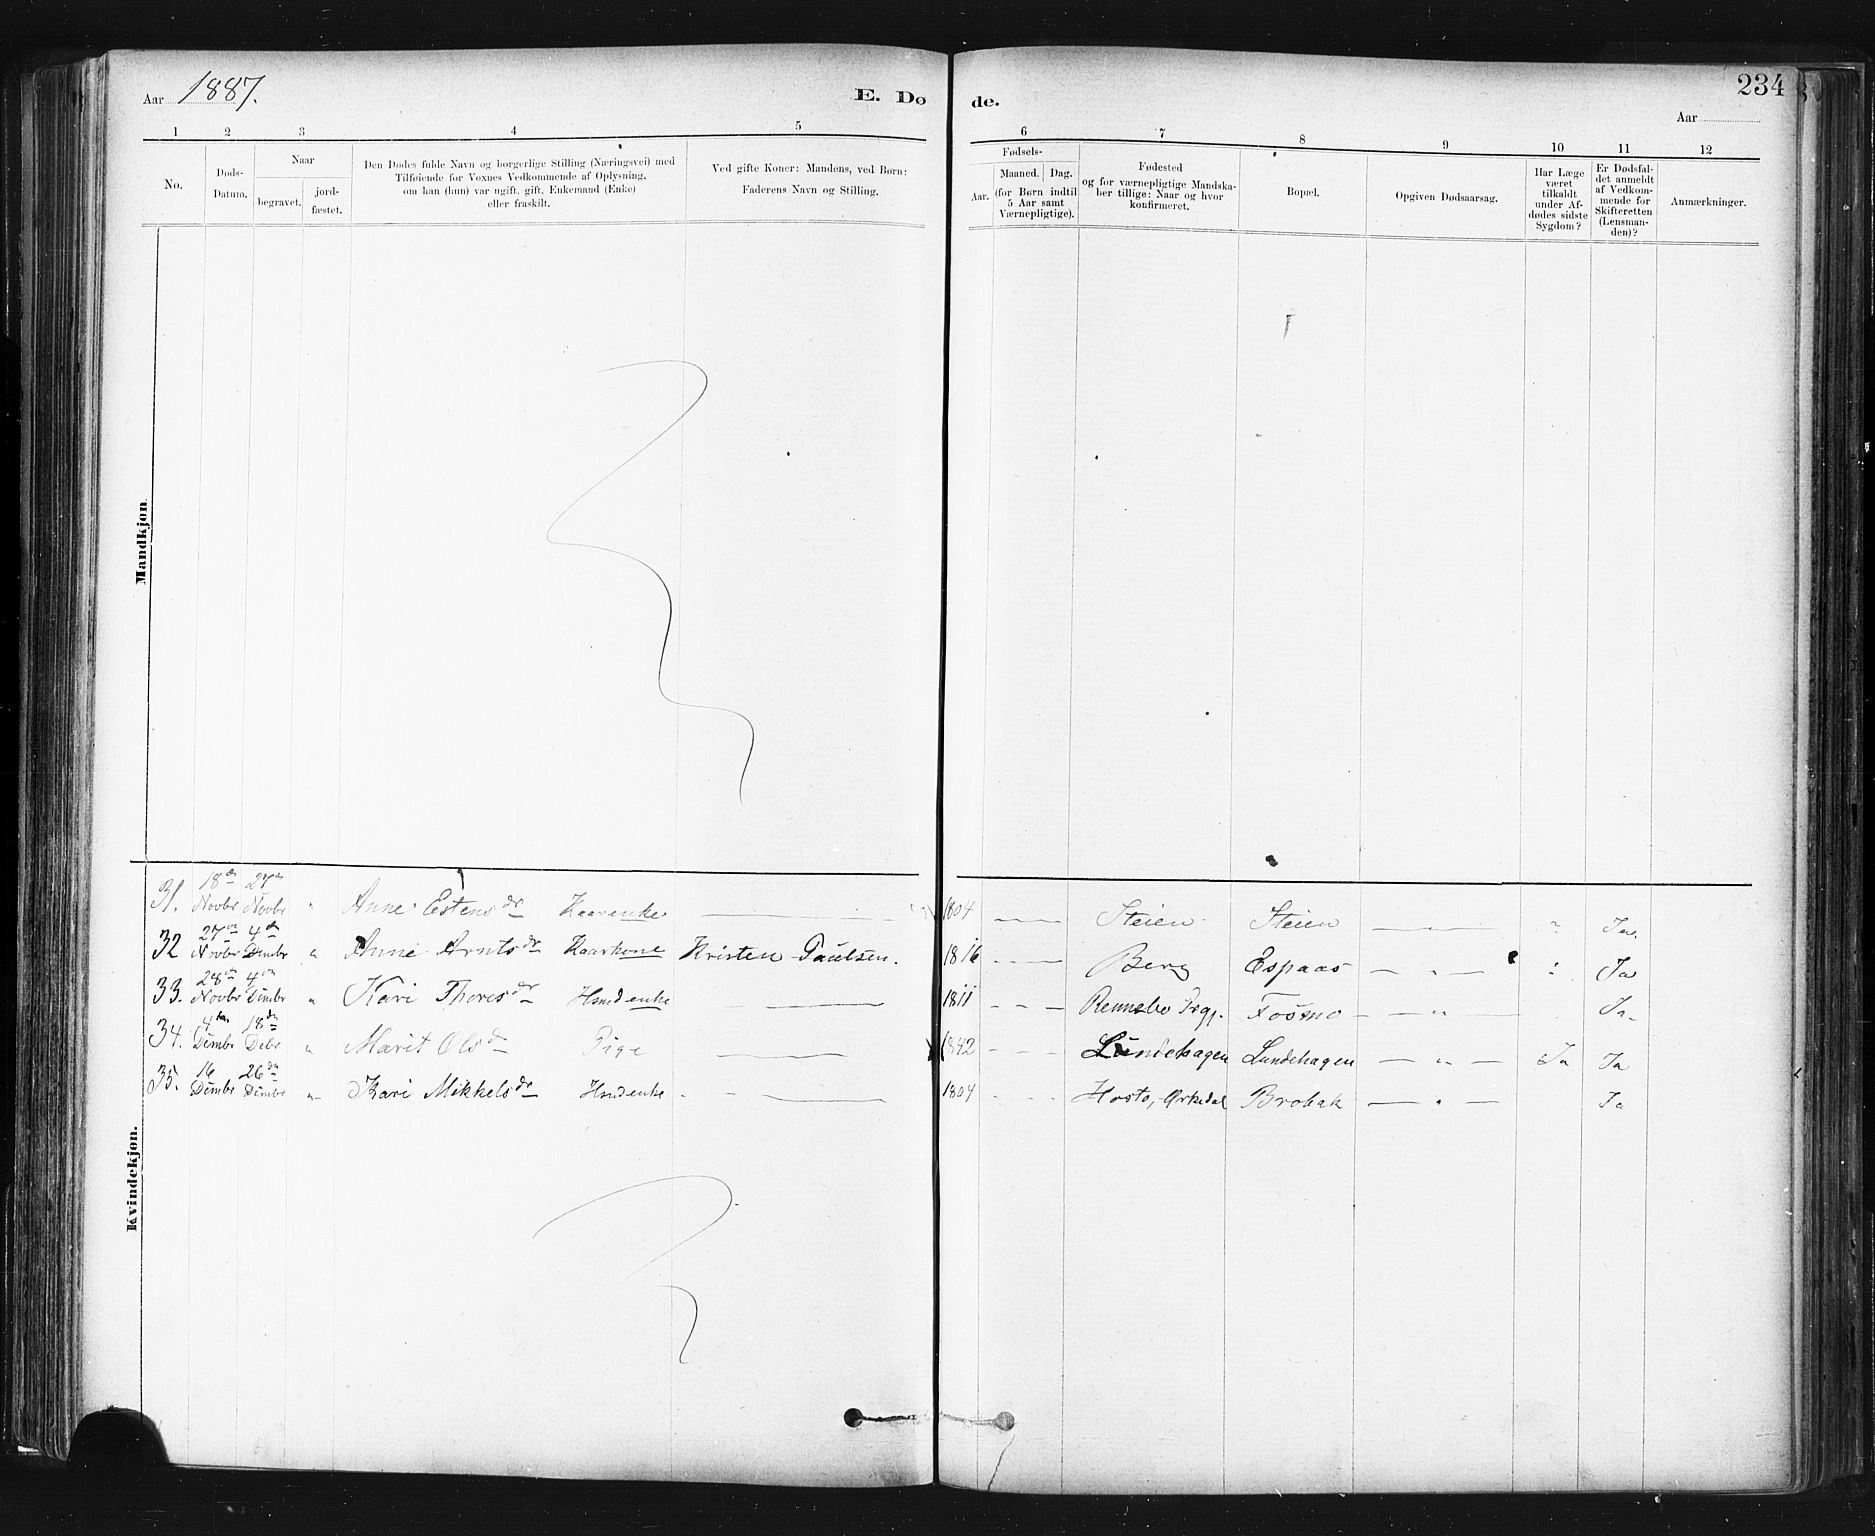 Aar 1887.
E. Dø
de.
234
Aar
1 2 3 4 5 6 7 8 9 10 11 12
No.
Døds-Datum.
Naar
begravet.
jord-fæstet.
Den Dødes fulde Navn og borgerlige Stilling (Næringsvei) med
Tilføiende for Voxnes Vedkommende af Oplysning,
om han (hun) var ugift, gift, Enkemand (Enke)
eller fraskilt.
Ved gifte Koner: Mandens, ved Børn:
Faderens Navn og Stilling.
Fødsels-
Aar.
Maaned. Dag.
(for Børn indtil
5 Aar samt
Værnepligtige).
Fødested
og for værnepligtige Mandska-
ber tillige: Naar og hvor
konfirmeret.
Bopæl.
Opgiven Dødsaarsag.
Har Læge
været
tilkaldt
under Af-
dødes sidste
Sygdom?
Er Dødsfal-
det anmeldt
af Vedkom-
mende for
Skifteretten
(Lensman-
den)?
Anmærkninger.
Mandkjøn
Kvindekjøn.
31. 18de Novbr 27de Novbr " Anne Estensdr Kaarenke — 1804 — Steien Steien — " — " Ja.
32 27de Novbr 4de Dcmbr " Anne Arntsdr Kaarkone Kristen Paulsen. 1816 — Berg Espaas — " — " Ja
33. 28de Novbr 4de Dcmbr " Kari Thoresdr Hsmdenke — 1811 — Rennebo Prgj. Fossmo — " — Ja
34. 4de Dcmbr 18de Dcbr " Marit Olsdr Pige — 1842 — Lundehagen Lundehagen — " — Ja Ja
35. 16 Dcmbr 26de Dcmbr " Kari Mikkelsdr Hsmdenke — 1804 — Hosto, Ørkedal Brobak — " — Ja